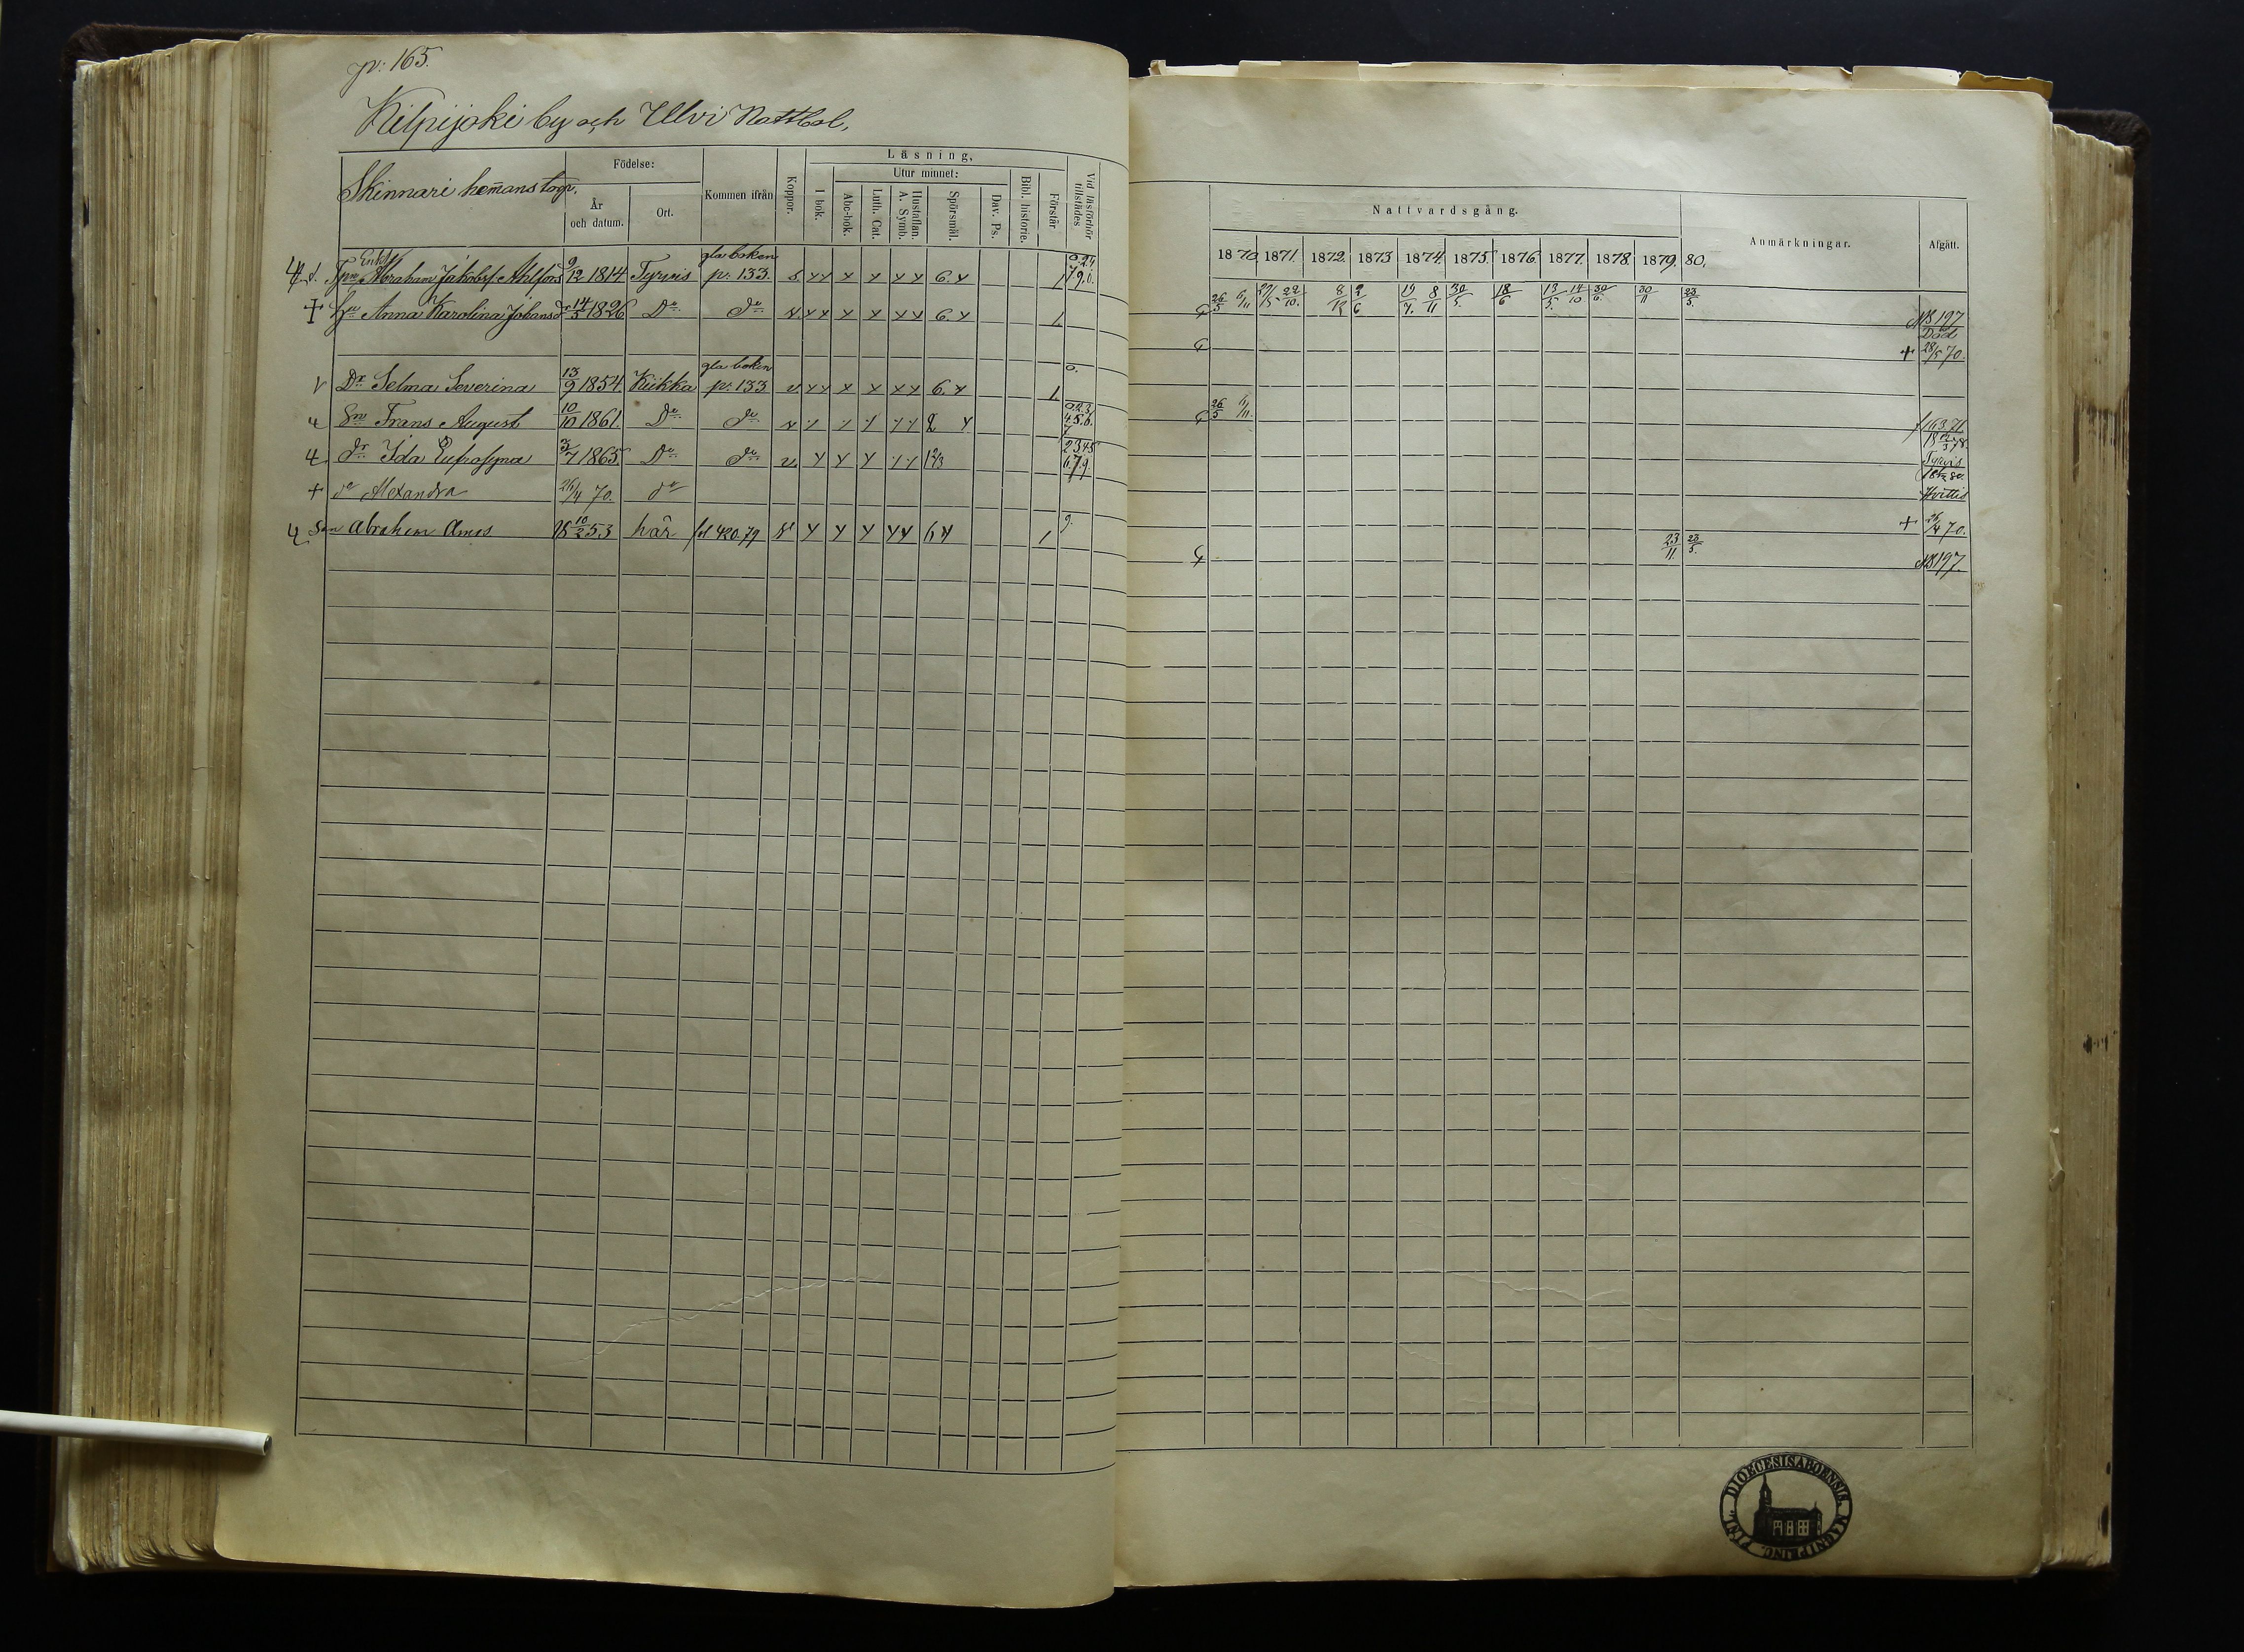 p: 165.
Kilpijoki by och Ulvi Rattbol,
Skinnari hemans torp.
Födelse:
År och datum.
Ort.
Kommen ifrån
Koppor.
Läsning,
I bok.
Utur minnet:
Abc-bok.
Luth. Cat.
Hustaflan. A. Symb.
Spörsmål.
Dav. Ps.
Bibl. historie.
Förstår
Vid läsförhör tillstädes
Nattvardsgång.
1870 1871. 1872. 1873 1874. 1875. 1876. 1877. 1878. 1879. 80.
Anmärkningar.
Afgått.
Enkl. Abraham Jakobsf. Ahlfors 9/12 1814 Tyrvis gla boken p: 133. x x x x x x 6. x 1 7.9.0. 26/5 6/11 22/10. 8/12 2/6 19/7. 8/11 30/5. 18/6 13/5. 14/10 30/6. 30/11 23/5. NB 197
+ Hu Anna Karolina Johansdr 14/5 1826 Do do x x x x x x 6. x 1 Död + 28/5 70.
v Dr Selma Severina 13/9 1854. Kiikka gla boken p: 133 v. x x x x x x 6. x 1 0. 26/5 6/11. f 163.71
Sn Frans August 10/10 1861. Do do 2 x 0.2.3. 4.5.6. 7 Tyrvis
dr Ida Eufrosyna 3/7 1865. Do do v. x x x 2345 6.7.9. Hvittis
+ dr Alexandra 26/4 70. do + 26/4 70.
Son Abraham Amos 18 10/2 53 här fol 420.79 x x x x x 6 x 1 9. 23/11 23/5. NB 197.
DIOECESIS ABOENSIS. MAGNI PRINC. FINL.